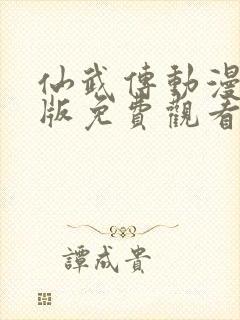 仙武傳動漫
版免費觀看
譚成貴